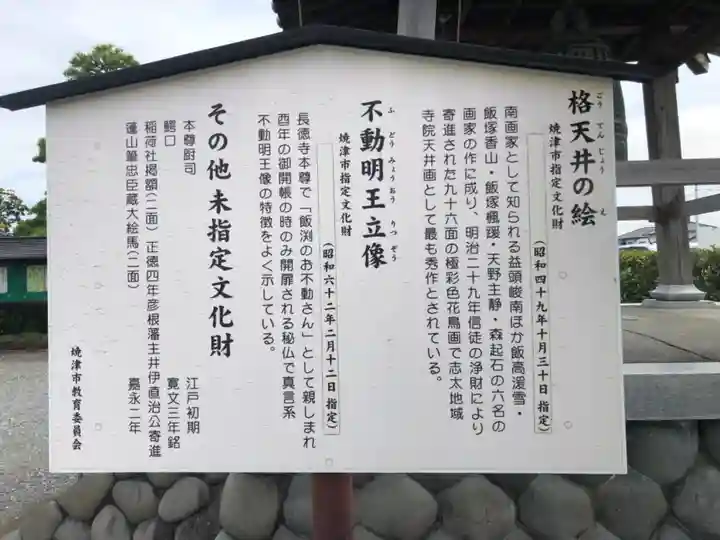 格天井の絵
ごうてんじょうのえ
焼津市指定文化財
(昭和四十九年十月三十日 指定)
南画家として知られる益頭峻南ほか飯高湲雪・
飯塚香山・飯塚楓蹊・天野主静・森起石の六名の
画家の作に成り、明治二十九年信徒の浄財により
寄進された九十六面の極彩色花鳥画で志太地域
寺院天井画として最も秀作とされている。
不動明王立像
ふどうみょうおうりつぞう
焼津市指定文化財
(昭和六十二年二月十二日 指定)
長徳寺本尊で「飯渕のお不動さん」として親しまれ
酉年の御開帳の時のみ開扉される秘仏で真言系
不動明王像の特徴をよく示している。
その他未指定文化財
本尊厨司 江戸初期
鰐口 寛文三年銘
稲荷社掲額(二面) 正徳四年彦根藩主井伊直治公寄進
蓬山筆忠臣蔵大絵馬(二面) 嘉永二年
焼津市教育委員会